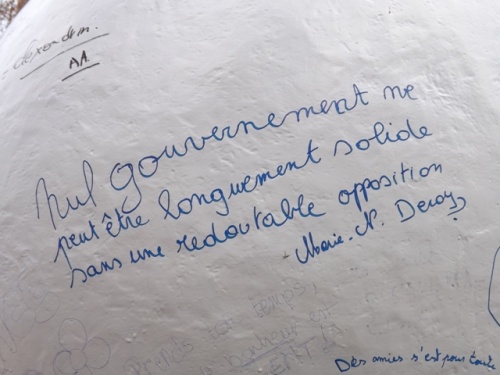 AA
Nul gouvernement ne
peut être longuement solide
sans une redoutable opposition
Marie. N. Deroy
Des amies s'est pour toute